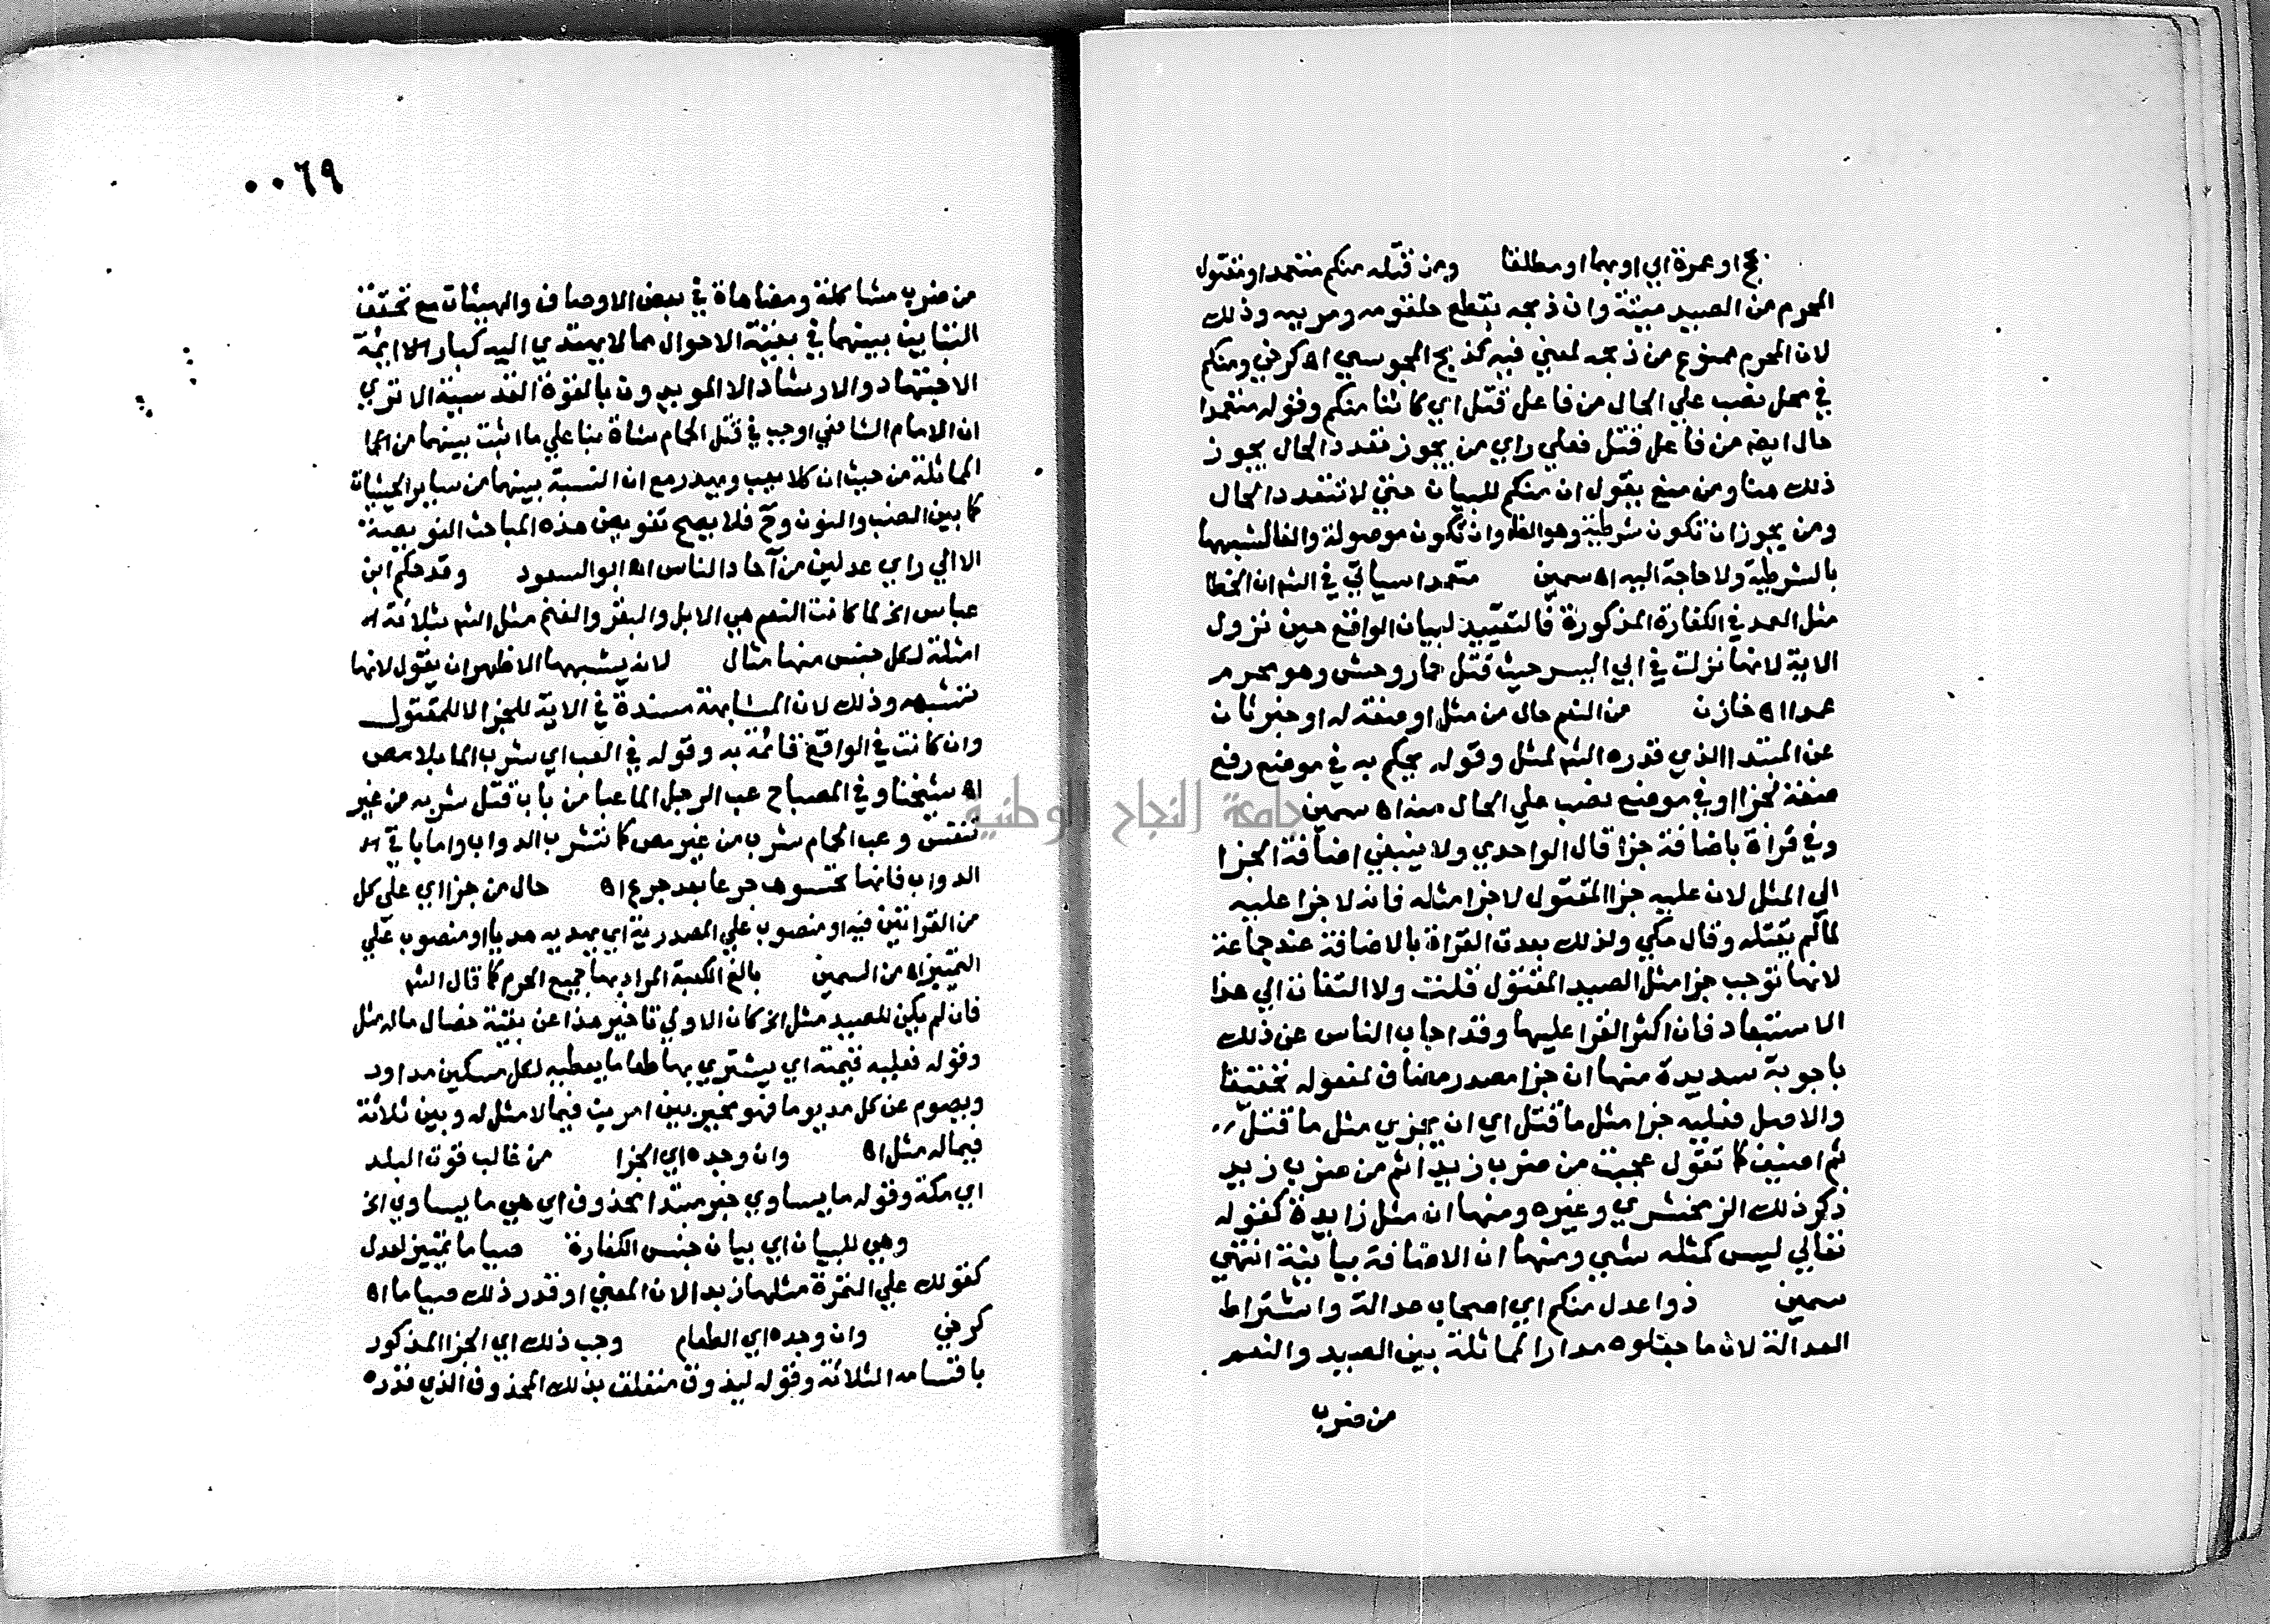 بحج او عمرة اي او بهما او مطلقا ومن قتله منكم متعمدا ومقتول
المحرم من الصيد ميتة وان ذبحه بقطع حلقومه ومريه وذلك
لان المحرم ممنوع من ذبحه لمعني فيه كذبح المجوسي اه كرخي ومنكم
في محل نصب علي الحال من فاعل قتل اي كائنا منكم وقوله متعمدا
حال ايضا من فاعل قتل فعلي راي من يجوز تعدد الحال يجوز
ذلك هنا ومن منع يقول ان منكم للبيان حتي لا تتعدد الحال
ومن يجوز ان تكون شرطية وهو الظ وان تكون موصولة والفا لشبهها
بالشرطية ولا حاجة اليه اه سمين متعمدا سياتي في الشم ان الخطا
مثل العمد في الكفارة المذكورة فالتقييد لبيان الواقع حين نزول
الاية لانها نزلت في ابي اليسر حيث قتل حمار وحش وهو محرم
عمدا اه خازن من النعم حال من مثل او صفة له او خبر ثان
عن المبتدا الذي قدره الشم لمثل وقوله يحكم به في موضع رفع
صفة لجزا او في موضع نصب علي الحال منه اه سمين
وفي قراة باضافة جزا قال الواحدي ولا ينبغي اضافة الجزا
الي المثل لان عليه جزا المقتول لا جزا مثله فانه لا جزا عليه
لما لم يقتله وقال مكي ولذلك بعدت القراة بالاضافة عند جماعة
لانها توجب جزا مثل الصيد المقتول قلت ولا التفات الي هذا
الاستبعاد فان اكثر القرا عليها وقد اجاب الناس عن ذلك
باجوبة سديدة منها ان جزا مصدر مضاف لمفعوله تخفيفا
والاصل فعليه جزا مثل ما قتل اي ان يجزي مثل ما قتل
ثم اضيف كما تقول عجبت من ضرب زيدا ثم من ضرب زيد
ذكر ذلك الزمخشري وغيره ومنها ان مثل زايدة كقوله
تعالي ليس كمثله شي ومنها ان الاضافة بيانية انتهي
سمين ذوا عدل منكم اي اصحاب عدالة واشتراط
العدالة لان ما جعلوه مدارا لمماثلة بين الصيد والنعم
من ضرب
٠٠٦٩
من ضرب مشاكلة ومضاهاة في بعض الاوصاف والهيئات مع تحقق
التباين بينهما في بقية الاحوال مما لا يهتدي اليه كبار ايمة
الاجتهاد والارشاد الا المويدون بالقوة القدسية الا تري
ان الامام الشافعي اوجب في قتل الحمام شاة بنا علي ما اثبت بينهما من
المماثلة من حيث ان كلا يعب ويهدر مع ان النسبة بينهما من ساير الحيثيات
كما بين الضب والنون وح فلا يصح تفويض هذه المباحث العويصة
الا الي راي عدلين من آحاد الناس اه ابو السعود وقد حكم ابن
عباس الخ لما كانت النعم هي الابل والبقر والغنم مثل الشم بثلاثة
امثلة لكل جنس منها مثال لانه يشبهها الاظهر ان يقول لانها
تشبهه وذلك لان المشابهة مسندة في الاية للجزا لا للمقتول
وان كانت في الواقع قائمة به وقوله في العب اي شرب الما بلا مص
اه شيخنا وفي المصباح عب الرجل الما عبا من باب قتل شربه من غير
تنفس وعب الحمام شرب من غير مص كما تشرب الدواب واما باقي
الدواب فانها تحتسوه جرعا بعد جرع اه حال من جزا اي علي كل
من القراتين فيه او منصوب علي المصدرية اي يهديه هديا او منصوب علي
التمييز اه من السمين بالغ الكعبة المراد بها جميع الحرم كما قال الشم
فان لم يكن للصيد مثل الخ كان الاولي تاخير هذا عن بقية خصال ما له مثل
وقوله فعليه قيمته اي يشتري بها طعاما يعطيه لكل مسكين مد او
ويصوم عن كل مد يوما فهو مخير بين امرين فيما لا مثل له وبين ثلاثة
فيما له مثل اه وان وجده اي الجزا من غالب قوت البلد
اي مكة وقوله ما يساوي خبر مبتدا محذوف اي هي ما يساوي الخ
وهي للبيان اي بيان جنس الكفارة صياما تمييز لعدل
كقولك علي التمرة مثلها زبدا لان المعني او قدر ذلك صياما اه
كرخي وان وجده اي الطعام وجب ذلك اي الجزا المذكور
باقسامه الثلاثة وقوله ليذوق متعلق بذلك المحذوف الذي قدره
جامعة النجاح الوطنية